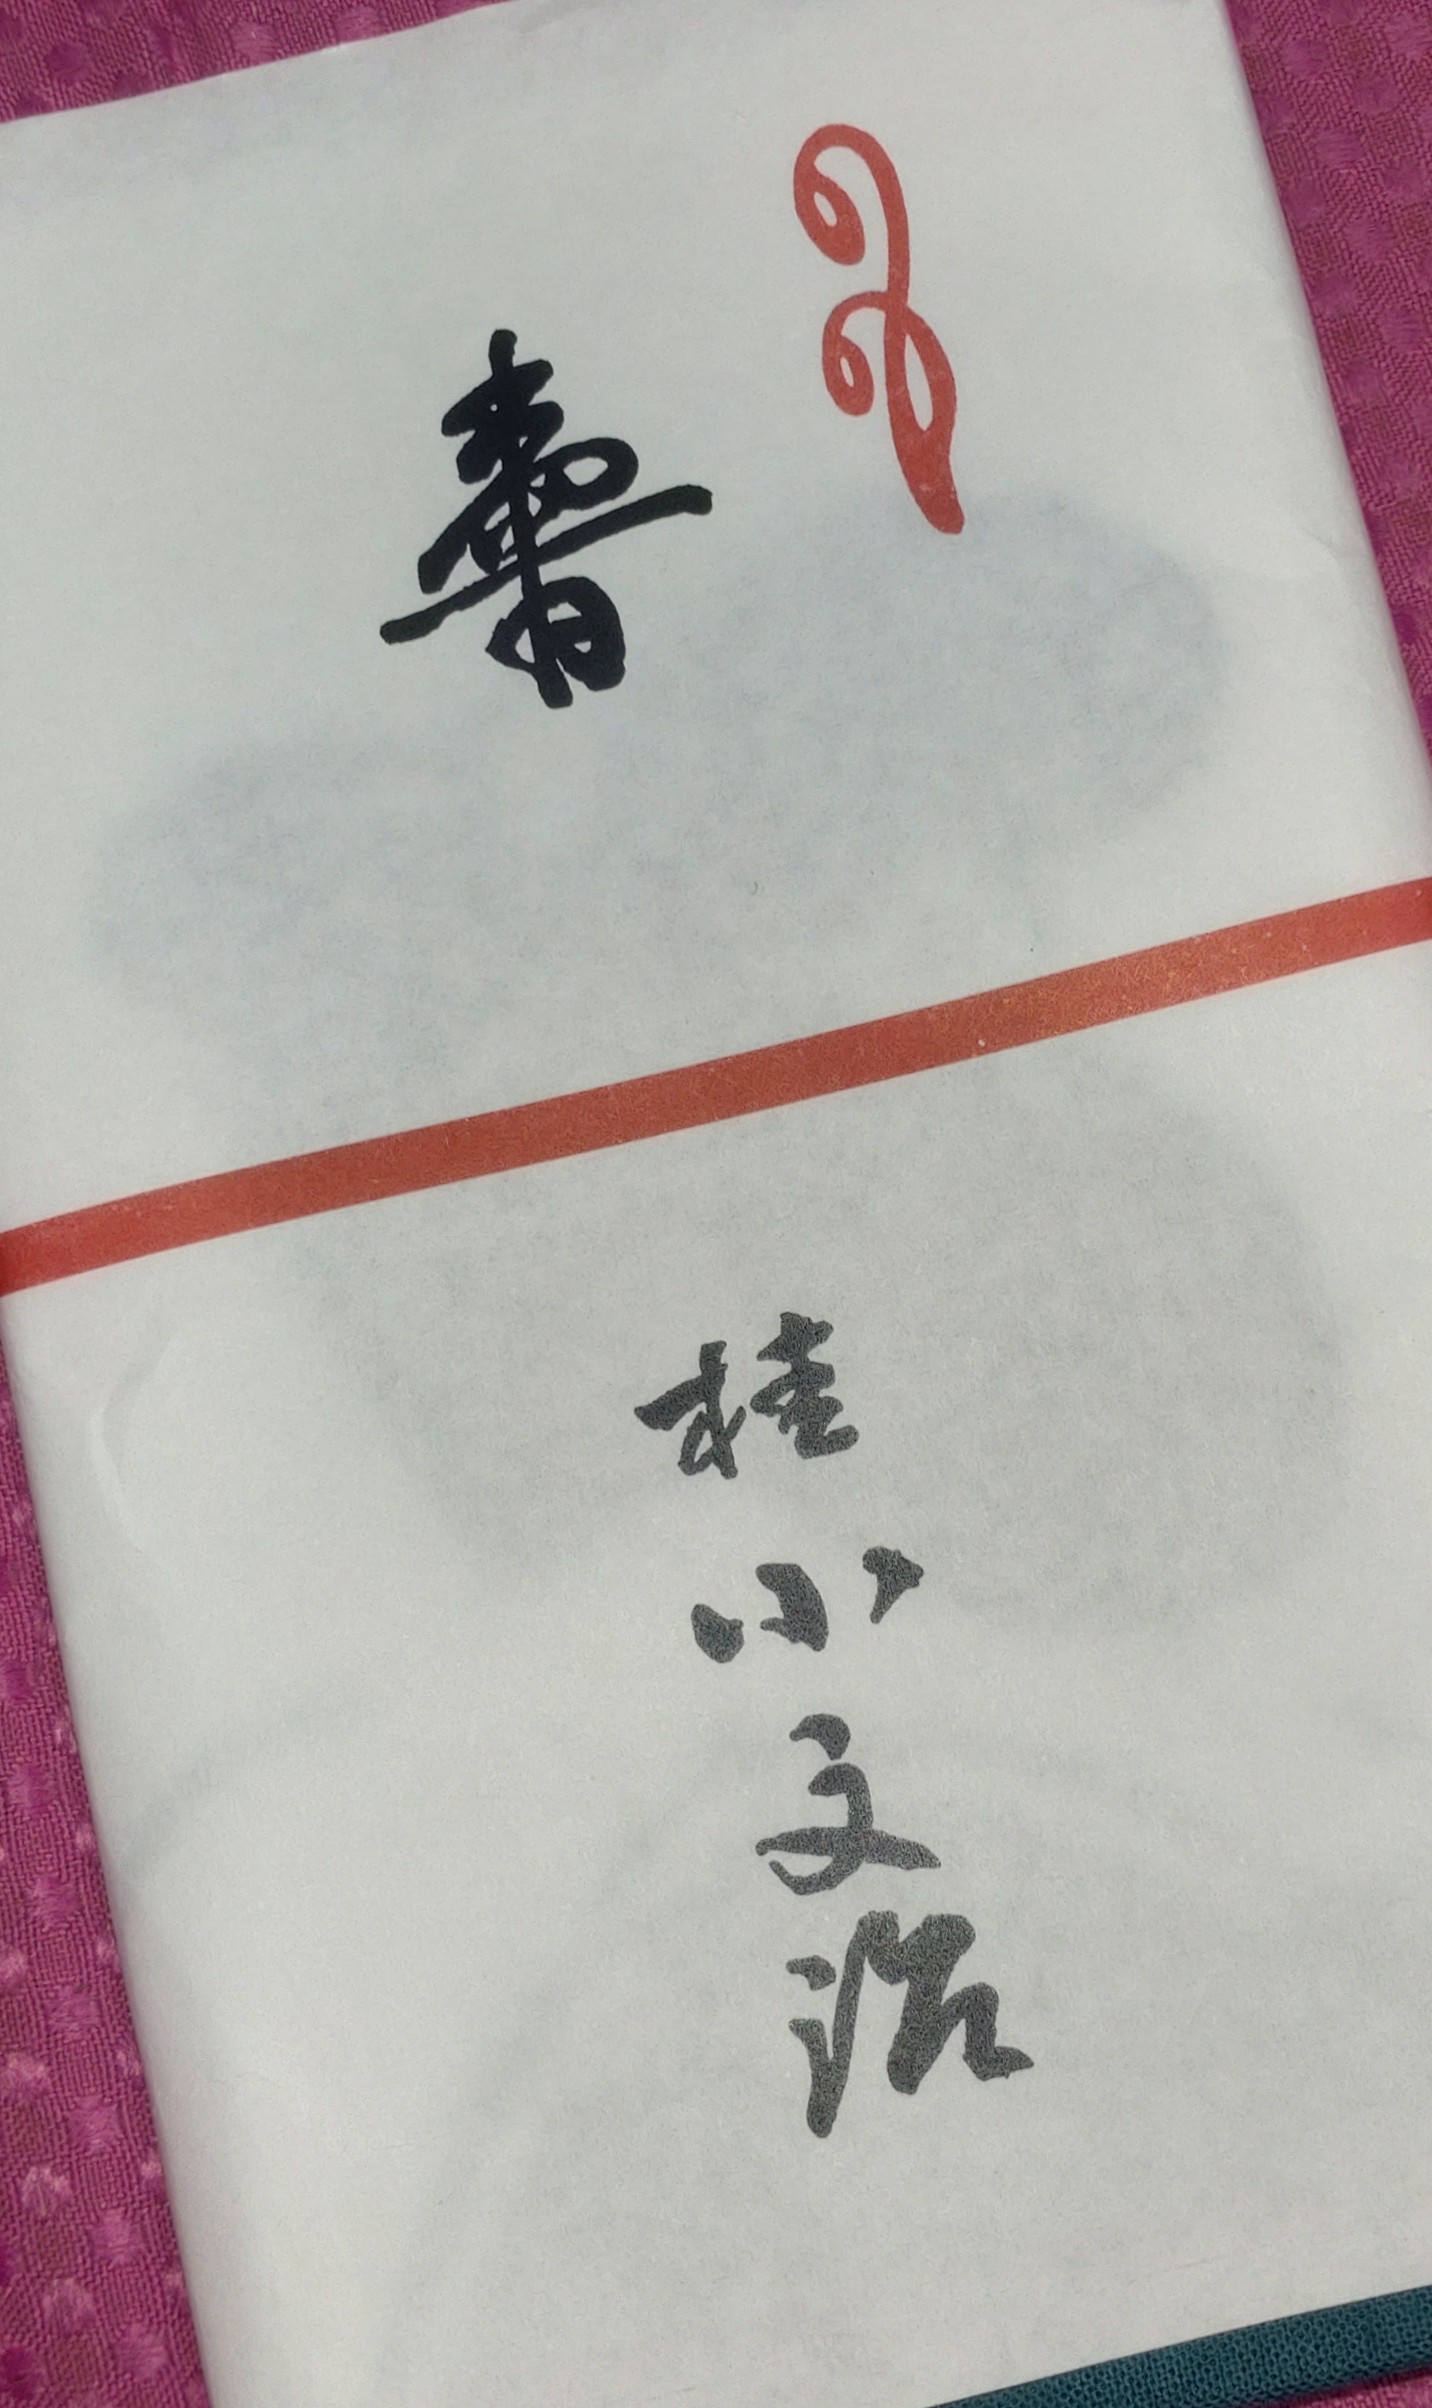 壽
桂小文治